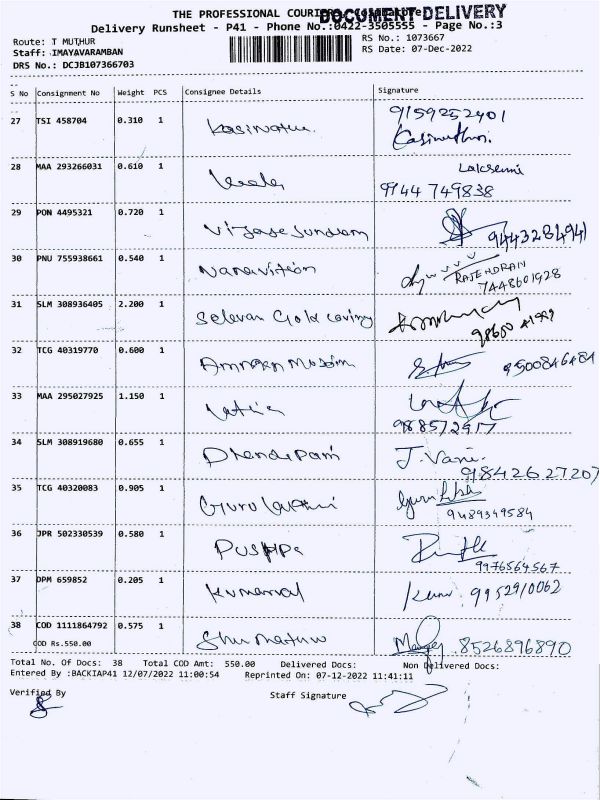 THE PROFESSIONAL COURIERS
DOCUMENT DELIVERY
Delivery Runsheet - P41 - Phone No.:0422-3505555 - Page No.:3
Route: T MUTHUR
Staff: IMAYAVARAMBAN
DRS No.: DCJB107366703
RS No.: 1073667
RS Date: 07-Dec-2022
S No Consignment No Weight PCS Consignee Details Signature
27 TSI 458704 0.310 1 9159252401
28 MAA 293266031 0.610 1 Laksemi
9944 749838
29 PON 4495321 0.720 1 Vijaye Sundram 9443284941
30 PNU 755938661 0.540 1 RAJENDRAN
7448601928
31 SLM 308936405 2.200 1 Selevan Gold covring
32 TCG 40319770 0.600 1 9500846484
33 MAA 295027925 1.150 1
9688572917
34 SLM 308919680 0.655 1 J. Vani.
9842627207
35 TCG 40320083 0.905 1
9489349584
36 JPR 502330539 0.580 1 Pushpa
9976564567
37 DPM 659852 0.205 1 9952910062
38 COD 1111864792 0.575 1 8526896890
COD Rs.550.00
Total No. Of Docs: 38 Total COD Amt: 550.00 Delivered Docs: Non Delivered Docs:
Entered By :BACKIAP41 12/07/2022 11:00:54 Reprinted On: 07-12-2022 11:41:11
Verified By Staff Signature